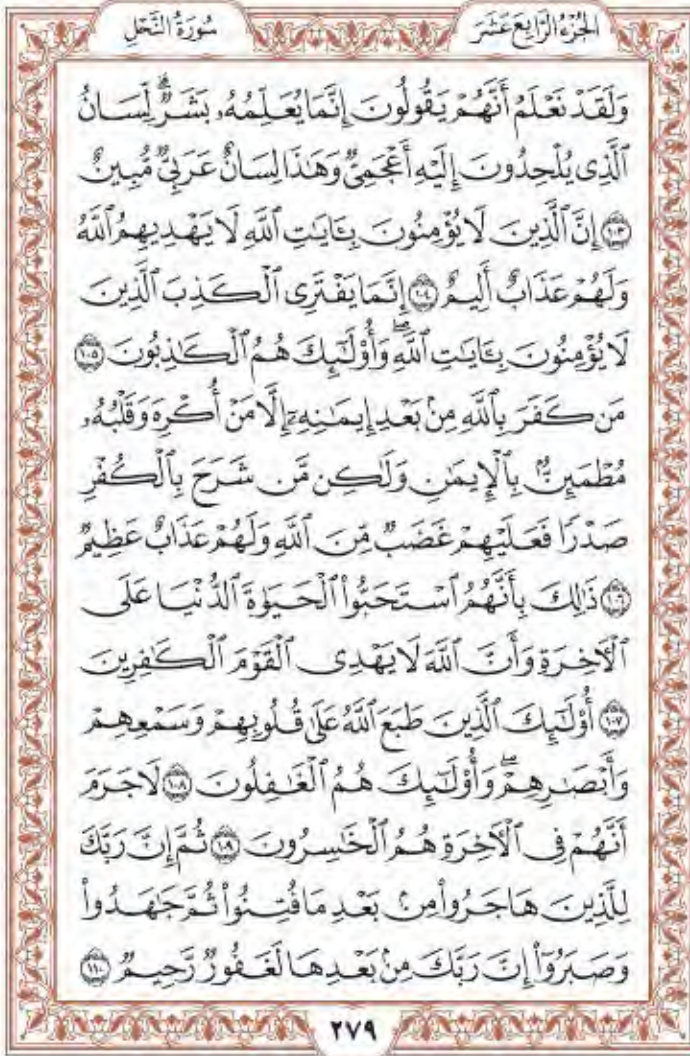 الجُزْءُ الرَّابِعَ عَشَرَ
سُورَةُ النَّحْلِ
وَلَقَدْ نَعْلَمُ أَنَّهُمْ يَقُولُونَ إِنَّمَا يُعَلِّمُهُۥ بَشَرٌۗ لِّسَانُ
ٱلَّذِى يُلْحِدُونَ إِلَيْهِ أَعْجَمِىٌّ وَهَـٰذَا لِسَانٌ عَرَبِىٌّ مُّبِينٌ
۝١٠٣ إِنَّ ٱلَّذِينَ لَا يُؤْمِنُونَ بِـَٔايَـٰتِ ٱللَّهِ لَا يَهْدِيهِمُ ٱللَّهُ
وَلَهُمْ عَذَابٌ أَلِيمٌ ۝١٠٤ إِنَّمَا يَفْتَرِى ٱلْكَذِبَ ٱلَّذِينَ
لَا يُؤْمِنُونَ بِـَٔايَـٰتِ ٱللَّهِۖ وَأُو۟لَـٰٓئِكَ هُمُ ٱلْكَـٰذِبُونَ ۝١٠٥
مَن كَفَرَ بِٱللَّهِ مِنۢ بَعْدِ إِيمَـٰنِهِۦٓ إِلَّا مَنْ أُكْرِهَ وَقَلْبُهُۥ
مُطْمَئِنٌّۢ بِٱلْإِيمَـٰنِ وَلَـٰكِن مَّن شَرَحَ بِٱلْكُفْرِ
صَدْرًا فَعَلَيْهِمْ غَضَبٌ مِّنَ ٱللَّهِ وَلَهُمْ عَذَابٌ عَظِيمٌ
۝١٠٦ ذَٰلِكَ بِأَنَّهُمُ ٱسْتَحَبُّوا۟ ٱلْحَيَوٰةَ ٱلدُّنْيَا عَلَى
ٱلْـَٔاخِرَةِ وَأَنَّ ٱللَّهَ لَا يَهْدِى ٱلْقَوْمَ ٱلْكَـٰفِرِينَ
۝١٠٧ أُو۟لَـٰٓئِكَ ٱلَّذِينَ طَبَعَ ٱللَّهُ عَلَىٰ قُلُوبِهِمْ وَسَمْعِهِمْ
وَأَبْصَـٰرِهِمْۖ وَأُو۟لَـٰٓئِكَ هُمُ ٱلْغَـٰفِلُونَ ۝١٠٨ لَا جَرَمَ
أَنَّهُمْ فِى ٱلْـَٔاخِرَةِ هُمُ ٱلْخَـٰسِرُونَ ۝١٠٩ ثُمَّ إِنَّ رَبَّكَ
لِلَّذِينَ هَاجَرُوا۟ مِنۢ بَعْدِ مَا فُتِنُوا۟ ثُمَّ جَـٰهَدُوا۟
وَصَبَرُوٓا۟ إِنَّ رَبَّكَ مِنۢ بَعْدِهَا لَغَفُورٌ رَّحِيمٌ ۝١١٠
٢٧٩